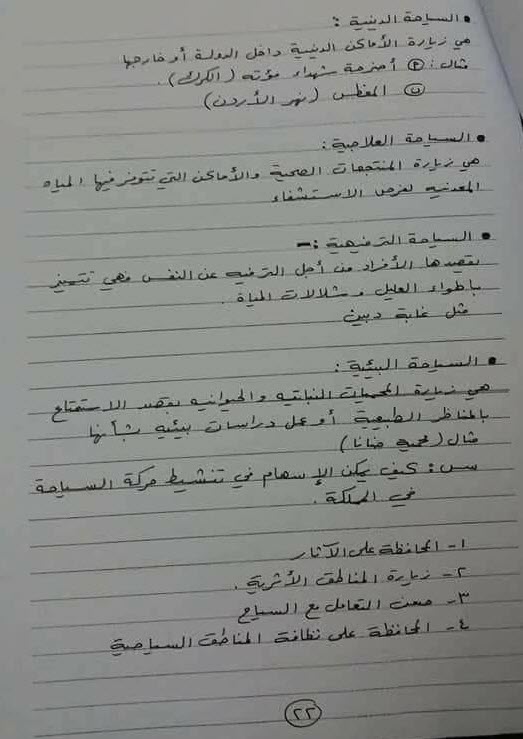 • السياحة الدينية :
هي زيارة الأماكن الدينية داخل الدولة أو خارجها
مثال : أ أضرحة شهداء مؤته (الكرك).
ب المغطس (نهر الأردن)
• السياحة العلاجية :
هي زيارة المنتجعات الصحية والأماكن التي تتوفر فيها المياه
المعدنيه لغرض الاستشفاء
• السياحة الترفيهية :-
يقصدها الأفراد من أجل الترفيه عن النفس فهي تتميز
بالهواء العليل وشلالات المياة .
مثل غابة دبين
• السياحة البيئية :
هي زيارة المحميات النباتيه والحيوانيه بقصد الاستمتاع
بالمناظر الطبيعية أو عمل دراسات بيئيه بشأنها
مثال (محمية ضانا)
س : كيف يمكن الإسهام في تنشيط حركة السياحة
في المملكة .
١- المحافظة على الآثار
٢- زيارة المناطق الأثرية .
٣- حسن التعامل مع السياح
٤- المحافظة على نظافة المناطق السياحية
٢٢